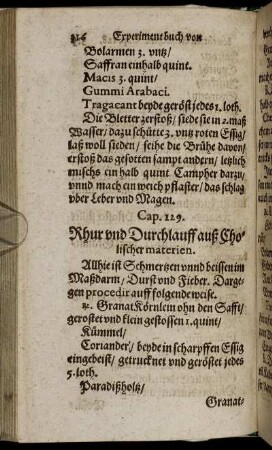 216 Experiment buch von
Bolarmen 3. vntz/
Saffran einhalb quint.
Macis 3. quint/
Gummi Arabaci.
Tragacant beyde geröst jedes 1. loth.
Die Bletter zerstoß/ siede sie in 2. maß
Wasser/ dazu schütte 3. vntz roten Essig/
laß woll sieden/ seihe die Brühe davon/
erstoß das gesotten sampt andern/ letzlich
mischs ein halb quint Campher darzu/
vnnd mach ein weich pflaster/ das schlag
vber Leber vnd Magen.
Cap. 129.
Rhur vnd Durchlauff auß Cho-
lischer materien.
Allhie ist Schmertzen vnnd beissen im
Maßdarm/ Durst vnd Fieber. Darge-
gen procedir auff folgende weise.
℞. Granat Körnlein ohn den Safft/
gerostet vnd klein gestossen 1. quint/
Kümmel/
Coriander/ beyde in scharpffen Essig
eingebeist/ getrucknet vnd geröstet jedes
5. loth.
Paradißholtz/
Granat-